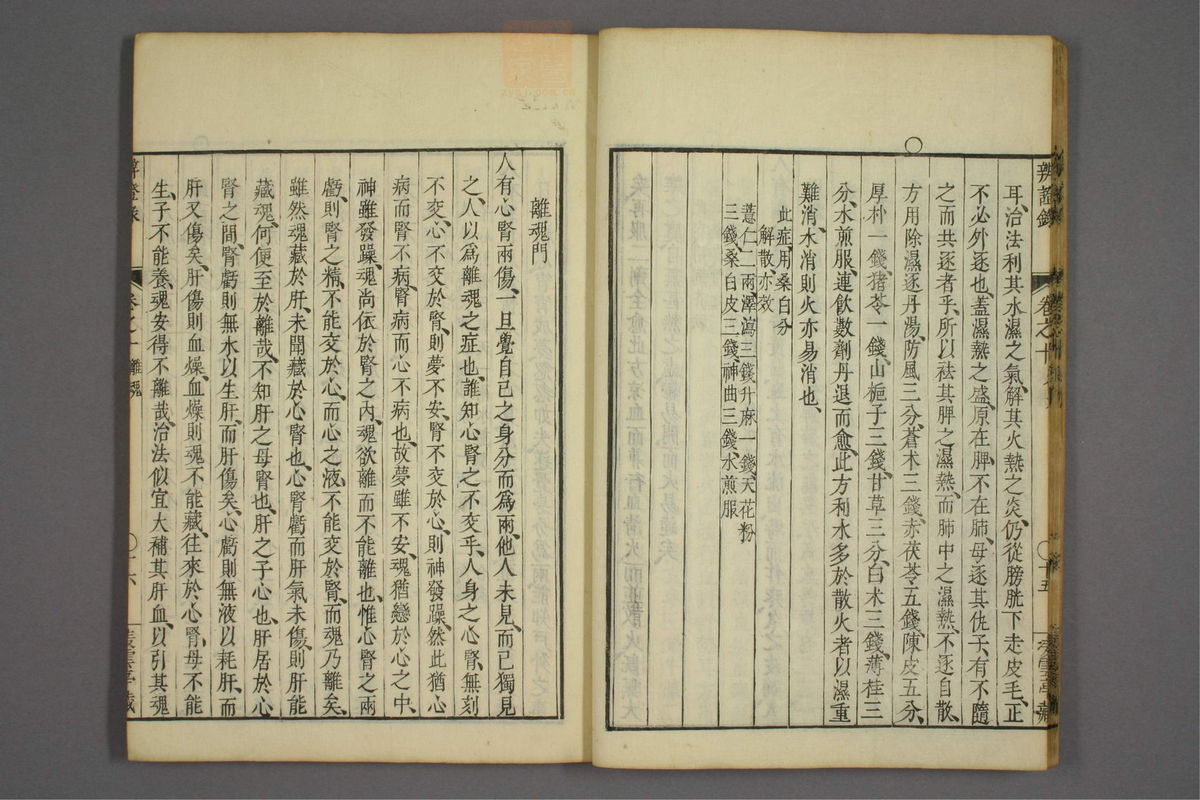 辨證錄
卷之十
十五
耳、治法利其水濕之氣、解其火熱之炎、仍從膀胱下走皮毛、正
不必外逐也、蓋濕熱之盛、原在脾不在肺、母逐其仇、子有不隨
之而共逐者乎、所以祛其脾之濕熱、而肺中之濕熱、不逐自散、
方用除濕逐丹湯、防風三分、蒼朮三錢、赤茯苓五錢、陳皮五分、
厚朴一錢、猪苓一錢、山梔子三錢、甘草三分、白朮三錢、薄桂三
分、水煎服、連飲數劑丹退而愈、此方利水多於散火者、以濕重
難消、水消則火亦易消也、
此症、用桑白分
解散、亦效
薏仁二兩澤瀉三錢升麻一錢天花粉
三錢、桑白皮三錢、神曲三錢、水煎服
離魂門
人有心腎兩傷、一旦覺自己之身、分而爲兩、他人未見、而已獨見
之、人以爲離魂之症也、誰知心腎之不交乎、人身之心腎、無刻
不交心、不交於腎、則夢不安、腎不交於心、則神發躁、然此猶心
病而腎不病、腎病而心不病也、故夢雖不安、魂猶戀於心之中、
神雖發躁、魂尚依於腎之內、魂欲離而不能離也、惟心腎之兩
虧、則腎之精、不能交於心、而心之液、不能交於腎、而魂乃離矣、
雖然魂藏於肝、未聞藏於心腎也、心腎虧而肝氣未傷、則肝能
藏魂、何便至於離哉、不知肝之母腎也、肝之子心也、肝居於心
腎之間、腎虧則無水以生肝、而肝傷矣、心虧則無液以耗肝、而
肝又傷矣、肝傷則血燥、血燥則魂不能藏、往來於心腎、母不能
生、子不能養、魂安得不離哉、治法似宜大補其肝血、以引其魂
辨證錄
卷之十離魂
十六